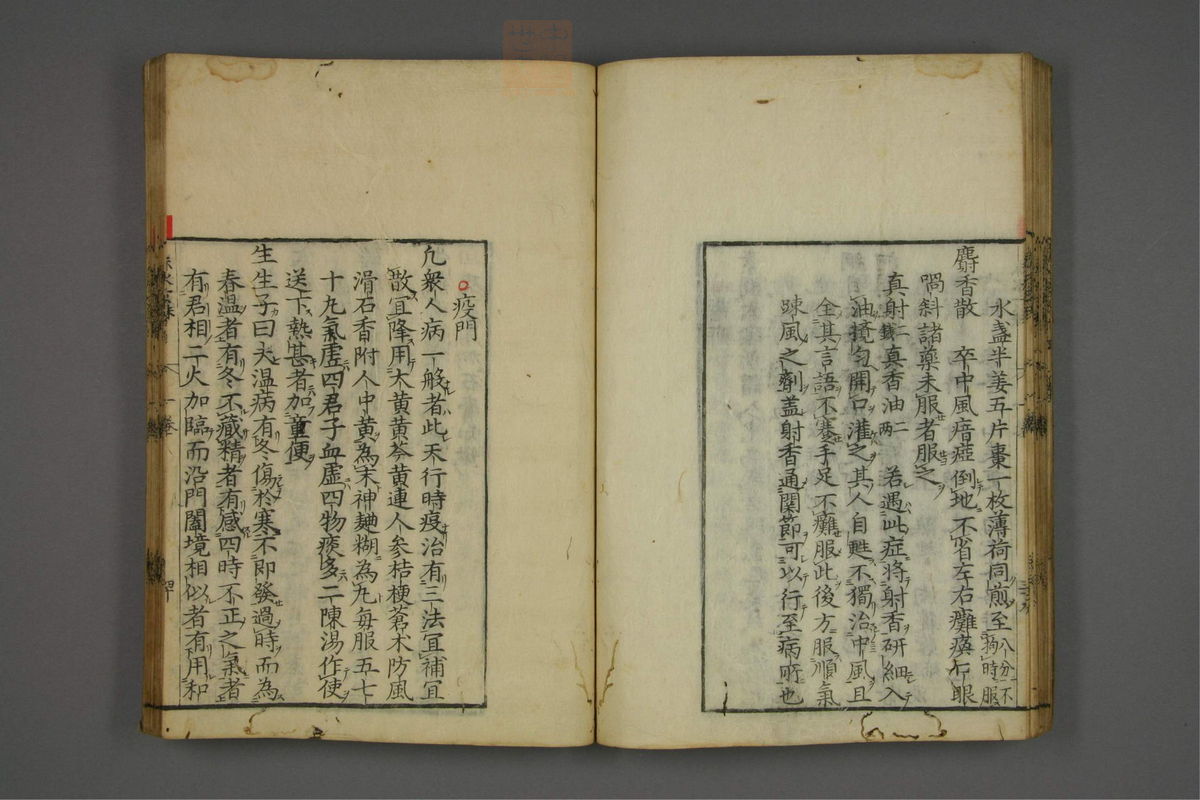 水盞半姜五片棗一枚薄荷同煎至八分不拘時服
麝香散 卒中風瘖瘂倒地不省左右癱瘓口眼
喎斜諸藥未服者服之
真射二錢真香油二兩 若遇此症將射香研細入
油攪匀開口灌之其人自甦不獨治中風且
全其言語不蹇手足不癱服此後方服順氣
踈風之劑盖射香通関節可以行至病所也
疫門
凢衆人病一般者此天行時疫治有三法冝補冝
散冝降用大黄黄芩黄連人参桔梗蒼朮防風
滑石香附人中黄為末神麯糊為丸每服五七
十丸氣虚四君子血虚四物痰多二陳湯作使
送下熱甚者加童便
生生子曰夫温病有冬傷於寒不即發過時而為
春温者有冬不藏精者有感四時不正之氣者
有君相二火加臨而沿門闔境相似者有用和
一卷